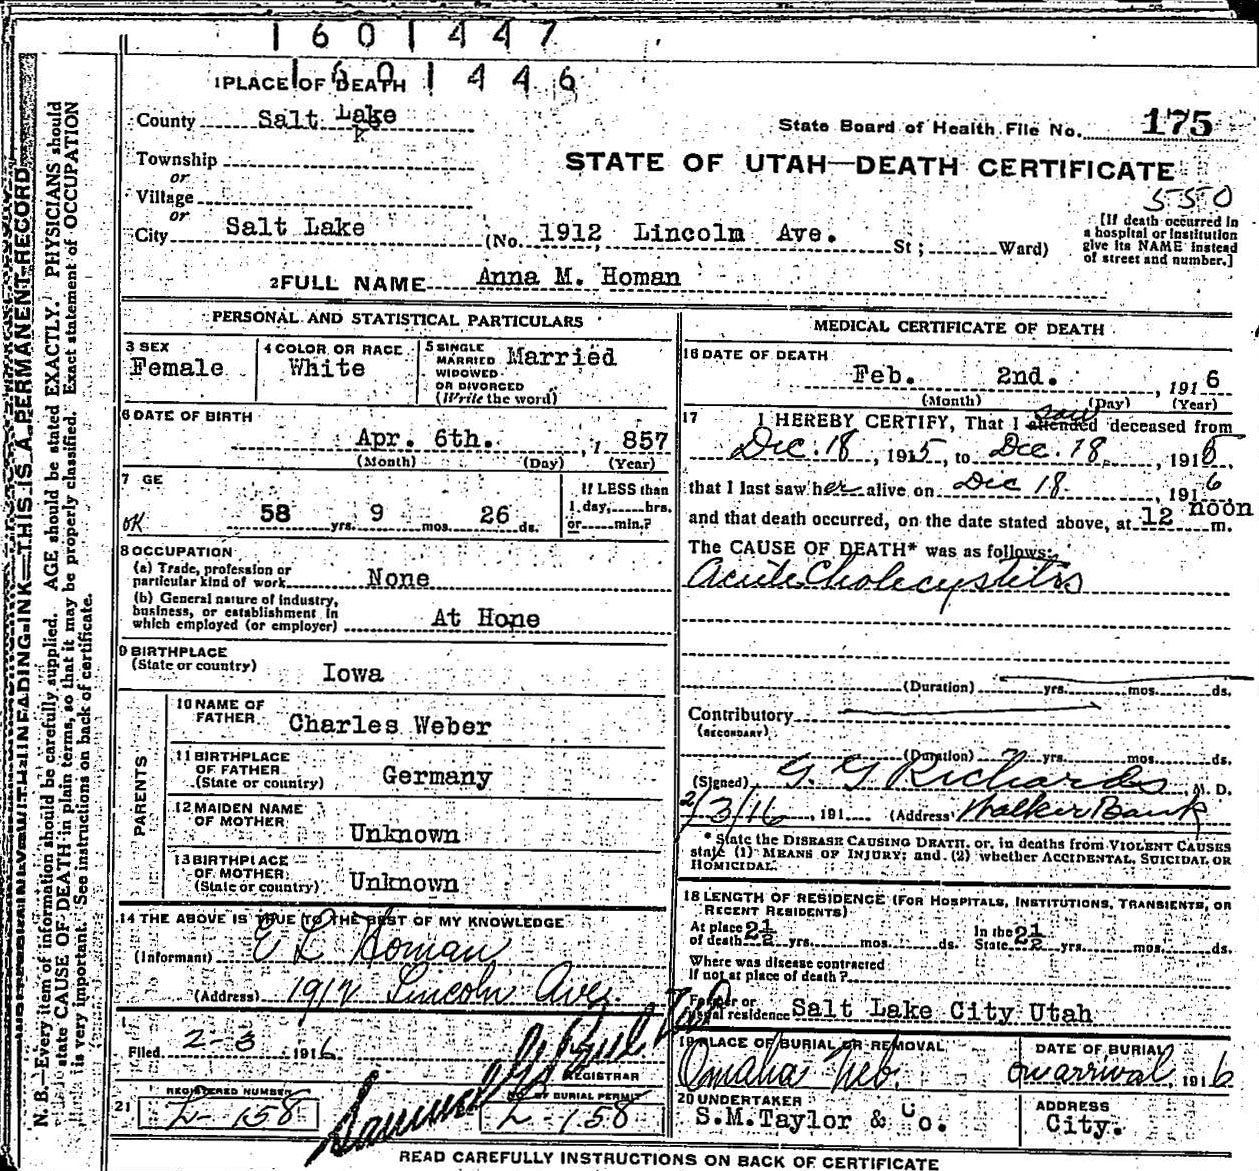 1601447
1601446
1 PLACE OF DEATH
County Salt Lake
State Board of Health File No. 175
Township
or
STATE OF UTAH—DEATH CERTIFICATE
Village
or
550
City Salt Lake (No. 1912 Lincolm Ave. St; Ward)
[If death occurred in
a hospital or institution
give its NAME instead
of street and number.]
2 FULL NAME Anna M. Homan
PERSONAL AND STATISTICAL PARTICULARS
3 SEX
Female
4 COLOR OR RACE
White
5 SINGLE
MARRIED
WIDOWED
OR DIVORCED
(Write the word)
Married
6 DATE OF BIRTH
Apr. 6th. , 1 857
(Month) (Day) (Year)
7 GE
OK
58 yrs. 9 mos. 26 ds.
If LESS than
1 day, hrs.
or min.?
8 OCCUPATION
(a) Trade, profession or
particular kind of work None
(b) General nature of industry,
business, or establishment in
which employed (or employer) At Hope
9 BIRTHPLACE
(State or country) Iowa
PARENTS
10 NAME OF
FATHER Charles Weber
11 BIRTHPLACE
OF FATHER
(State or country) Germany
12 MAIDEN NAME
OF MOTHER Unknown
13 BIRTHPLACE
OF MOTHER
(State or country) Unknown
14 THE ABOVE IS TRUE TO THE BEST OF MY KNOWLEDGE
(Informant) E L Homan
(Address) 1912 Lincoln Ave.
Filed 2-3 1916
REGISTRAR
21 REGISTERED NUMBER
L-158
NO. OF BURIAL PERMIT
L-158
MEDICAL CERTIFICATE OF DEATH
16 DATE OF DEATH
Feb. 2nd. , 191 6
(Month) (Day) (Year)
17 I HEREBY CERTIFY, That I attended saw deceased from
Dec. 18, 1915, to Dec. 18, 1915
that I last saw her alive on Dec 18, 1916
and that death occurred, on the date stated above, at 12 noon m.
The CAUSE OF DEATH* was as follows:
Acute Cholecystitis
(Duration) yrs. mos. ds.
Contributory
(SECONDARY)
(Duration) yrs. mos. ds.
(Signed) G. G Richards M. D.
2/3/16, 191 (Address) Walker Bank
* State the DISEASE CAUSING DEATH, or, in deaths from VIOLENT CAUSES
state (1) MEANS OF INJURY; and (2) whether ACCIDENTAL, SUICIDAL OR
HOMICIDAL.
18 LENGTH OF RESIDENCE (FOR HOSPITALS, INSTITUTIONS, TRANSIENTS, OR
RECENT RESIDENTS)
At place
of death 2½ yrs. mos. ds.
In the
State 2½ yrs. mos. ds.
Where was disease contracted
if not at place of death?
Former or
usual residence Salt Lake City Utah
19 PLACE OF BURIAL OR REMOVAL
Omaha Neb.
DATE OF BURIAL
on arrival 1916
20 UNDERTAKER
S.M.Taylor & Co.
ADDRESS
City.
READ CAREFULLY INSTRUCTIONS ON BACK OF CERTIFICATE
WITH UNFADING INK—THIS IS A PERMANENT RECORD
N. B.—Every item of information should be carefully supplied. AGE should be stated EXACTLY. PHYSICIANS should
state CAUSE OF DEATH in plain terms, so that it may be properly classified. Exact statement of OCCUPATION
is very important. See instructions on back of certificate.